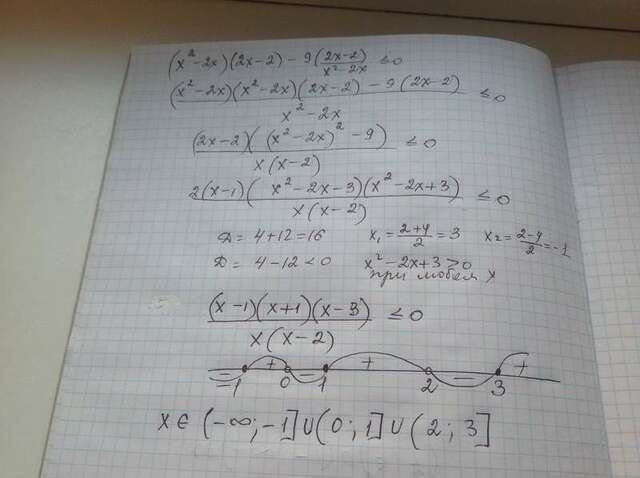 (x²-2x)(2x-2) - 9(\frac{2x-2}{x²-2x}) ≤0
\frac{(x²-2x)(x²-2x)(2x-2) - 9(2x-2)}{x²-2x} ≤0
\frac{(2x-2)((x²-2x)² -9)}{x(x-2)} ≤0
\frac{2(x-1)(x²-2x-3)(x²-2x+3)}{x(x-2)} ≤0
D = 4+12=16 x₁ = \frac{2+4}{2} = 3 x₂ = \frac{2-4}{2} = -1
D = 4-12<0 x²-2x+3>0
при любом x
\frac{(x-1)(x+1)(x-3)}{x(x-2)} ≤0
- + - + - +
-1 0 1 2 3
x∈ (-∞; -1]∪(0; 1]∪(2; 3]